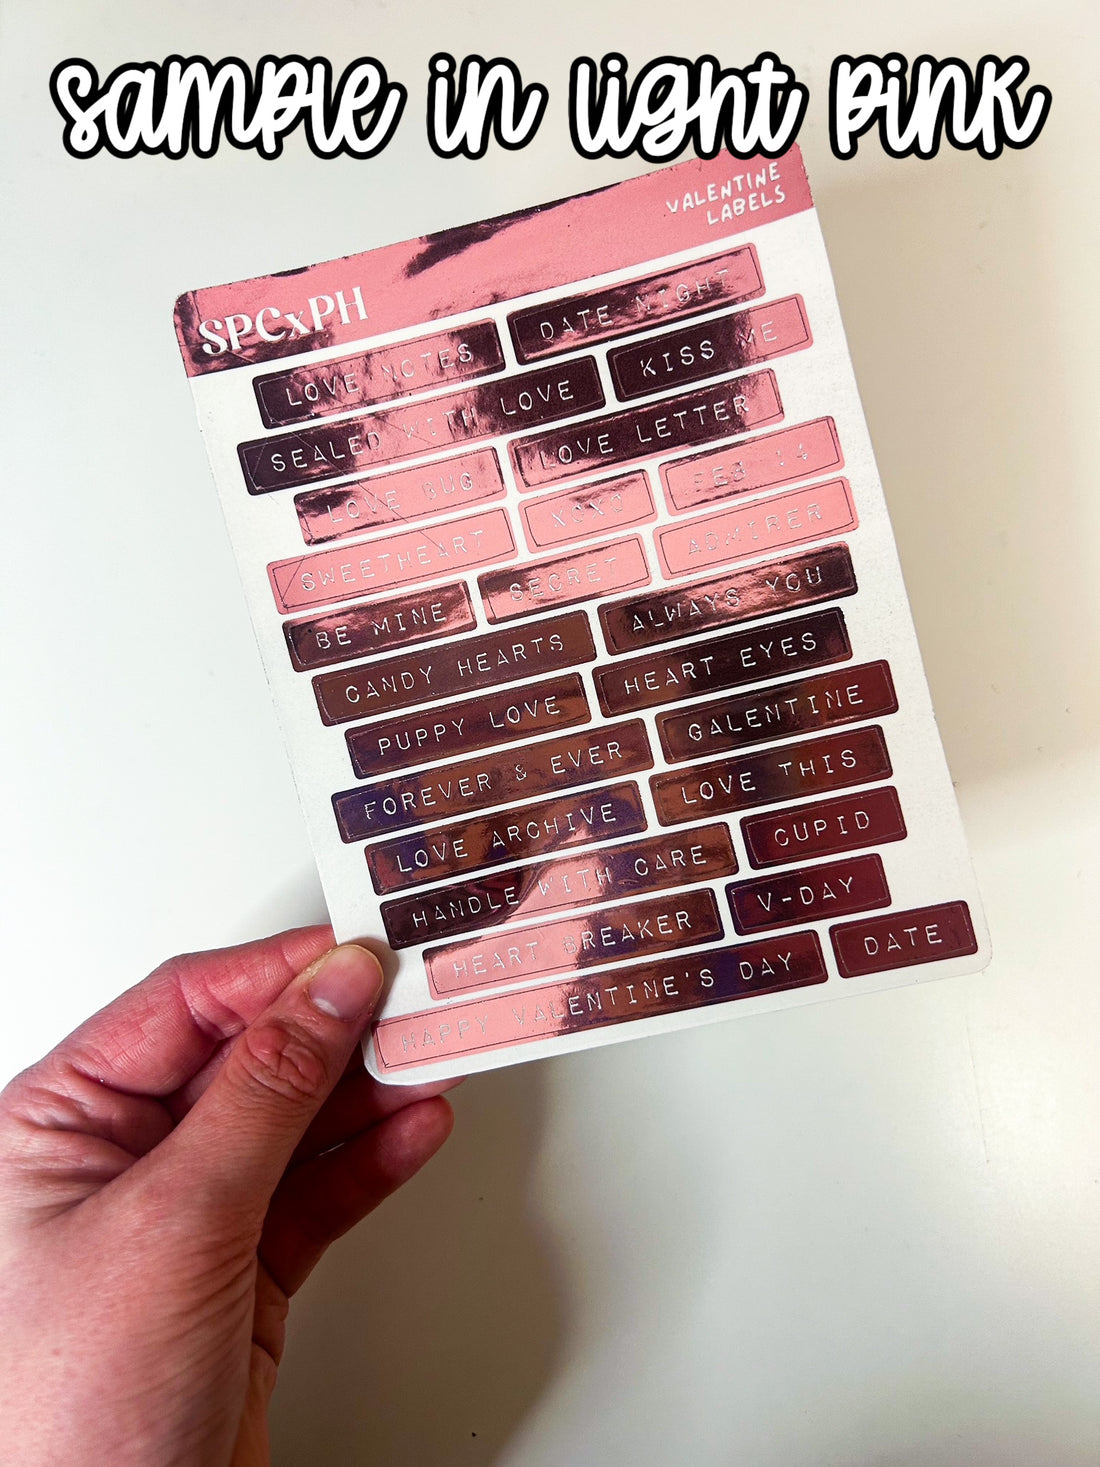 sample in light pink
VALENTINE
LABELS
SPCxPH
LOVE NOTES
DATE NIGHT
SEALED WITH LOVE
KISS ME
LOVE BUG
LOVE LETTER
SWEETHEART
XOXO
FEB 14
BE MINE
SECRET
ADMIRER
CANDY HEARTS
ALWAYS YOU
PUPPY LOVE
HEART EYES
FOREVER & EVER
GALENTINE
LOVE ARCHIVE
LOVE THIS
HANDLE WITH CARE
CUPID
HEART BREAKER
V-DAY
HAPPY VALENTINE'S DAY
DATE